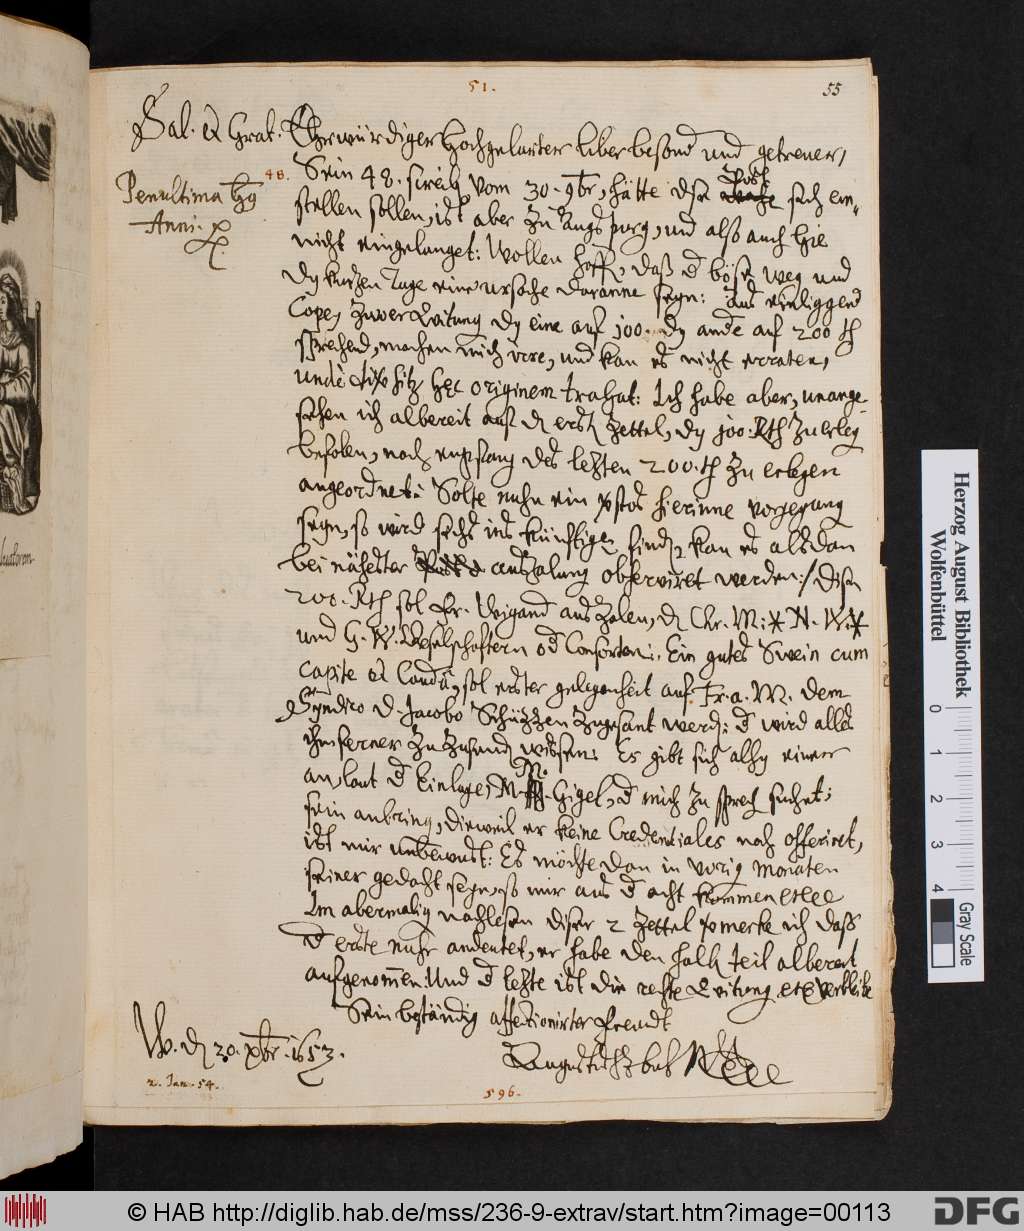 51.
55
Sal. et Grat. Ehrwürdiger Hochgelarter liber besond und getreuer,
48. Sein 48. screib vom 30. 9br, hätte dse Post sich ein-
Penultima
Anni.
stellen sollen, ist aber zu Augspurg, und also auch hie
nicht eingelanget: Wollen hoff, daß d böse weg und
dy kurzen Tage eine ursache daranne seyn: Aus einliggend
Copey zwoer Qvitung dy eine auf 100. dy ande auf 200 th
sprechend, machen mich irre, und kan es nicht erraten,
unde originem trahat: Ich habe aber, unange-
sehen ich albereit auf d erst Zettel, dy 100. Rth zuerleg
befolen, nach empfang des letzten 200. th zu erlegen
angeordnet: Solte nuhn ein xstos hierinne vorgegang
seyn, so wird sechs ins künftige find, kan es alsdan
bei nähester auszalung observiret werden:/ Dise
200. Rth sol Hr. Weigand auszalen, d Chr. M: * N. W: *
und G. W. Geselschaftern od Consorten:. Ein gutes Swein cum
capite et Cauda, sol erster gelegenheit auf Fr. a. M. dem
Syndico D. Jacobo Schüzzen zugesant werd: d wird alles
ihm ferner zu zusend wissen: Es gibt sich alhy einer
an, laut d Einlage, M. Gigel, d mich zu sprech suchet;
sein anbring, dieweil er keine Credentiales noch offeriret,
ist mir unbewust: Es möchte dan in vorig monaten
seiner gedacht seyn, so mir aus d acht kommen etc
Im abermalig nachlesen diser 2 Zettel xomerke ich dass
d erste nuhr andeutet, er habe den halb teil alberet
aufgenomen. Und d letzte ist die rechte Qvitung. etc Verbleibe
Sein beständig affectionirter freundt
W. d 20. xbr. 1653.
Augustus HzbuL
2. Jan. 54.
596.
Herzog August Bibliothek
Wolfenbüttel
0 1 2 3 4
Gray Scale
© HAB http://diglib.hab.de/mss/236-9-extrav/start.htm?image=00113
DFG